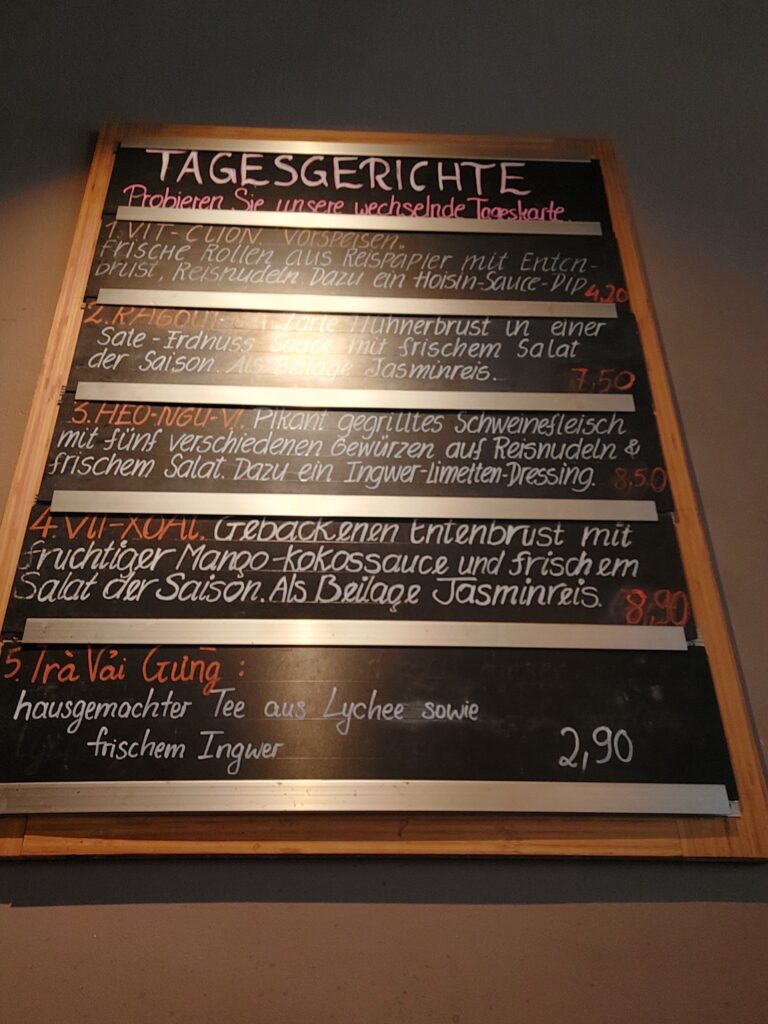 TAGESGERICHTE
Probieren Sie unsere wechselnde Tageskarte.
1. VIT-CUON. Vorspeisen..
Frische Rollen aus Reispapier mit Enten-
brust, Reisnudeln Dazu ein Hoisin-Sauce-DIP 4,20
2. RAGOUT- Zarte Hühnerbrust in einer
Sate-Erdnuss Sauce mit frischem Salat
der Saison. Als Beilage Jasminreis. 7,50
3. HEO-NGU-VI. Pikant gegrilltes Schweinefleisch
mit fünf verschiedenen Gewürzen auf Reisnudeln &
frischem Salat. Dazu ein Ingwer-Limetten-Dressing. 8,50
4. VIT-XOAI. Gebackenen Entenbrust mit
fruchtiger Mango-kokossauce und frischem
Salat der Saison. Als Beilage Jasminreis. 8,90
5. Trà Vải Gừng :
hausgemachter Tee aus Lychee sowie
frischem Ingwer 2,90